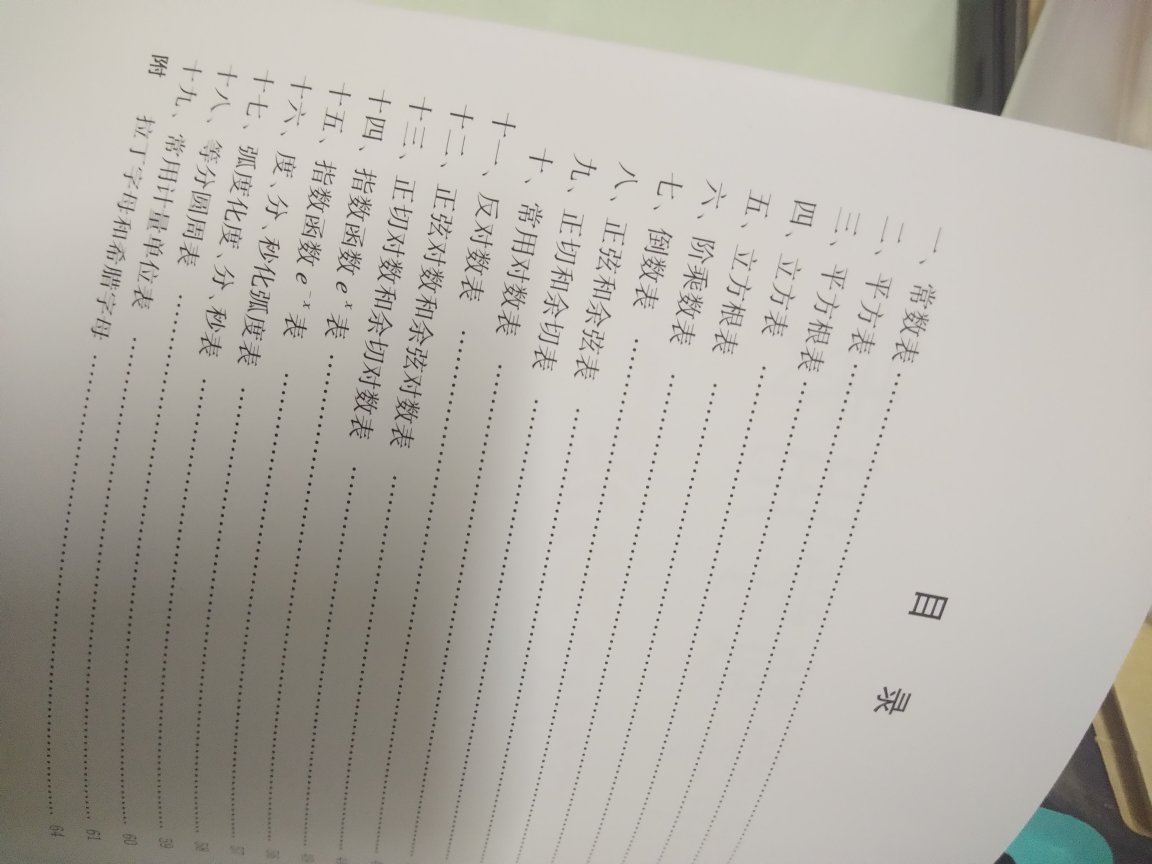 目 录
一、常数表
二、平方表
三、平方根表
四、立方表
五、立方根表
六、阶乘数表
七、倒数表
八、正弦和余弦表
九、正切和余切表
十、常用对数表
十一、反对数表
十二、正弦对数和余弦对数表
十三、正切对数和余切对数表
十四、指数函数 eˣ 表
十五、指数函数 e⁻ˣ 表
十六、度、分、秒化弧度表 56
十七、弧度化度、分、秒表 57
十八、等分圆周表 58
十九、常用计量单位表 60
附 拉丁字母和希腊字母 64